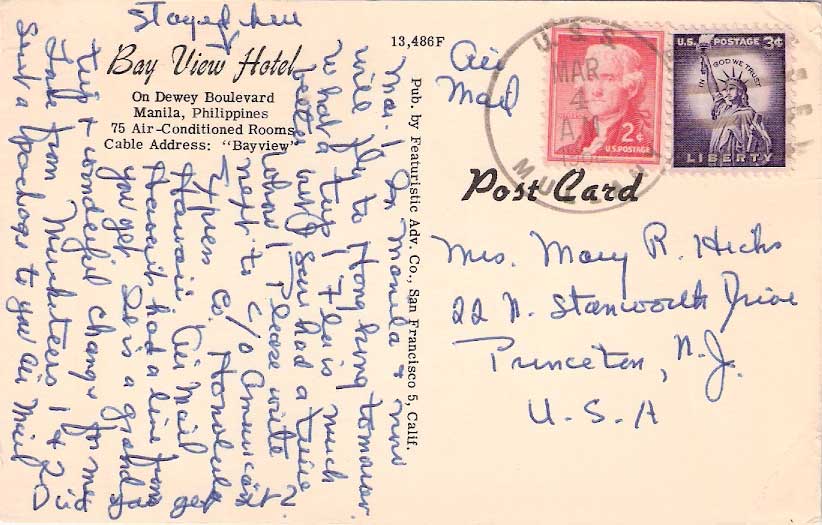 Stayed here
Bay View Hotel
On Dewey Boulevard
Manila, Philippines
75 Air-Conditioned Rooms
Cable Address: "Bayview"
13,486F
Pub. by Featuristic Adv. Co., San Francisco 5, Calif.
Mar. 1 In Manila & now
will fly to Hong Kong tomorrow.
What a trip! Flo is much
better
had a time
Please write
next to c/o American
Express Co. Honolulu
Hawaii Air Mail
had a line from
you yet She is a grand
trip & wonderful change for me
from Musketeers 1 & 2 Did
Sent a package to you Air Mail
Air
Mail
U.S.S.
MAR
4
A.M.
2¢
U.S. POSTAGE
U.S. POSTAGE 3¢
IN GOD WE TRUST
LIBERTY
Post Card
Mrs. Mary R. Hicks
22 N. Stanworth Drive
Princeton, N.J.
U.S.A